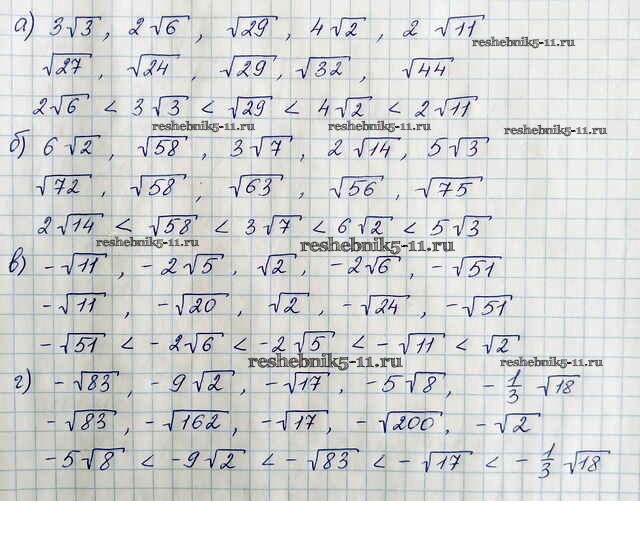 а) 3√3, 2√6, √29, 4√2, 2 √11
reshebnik5-11.ru
√27, √24, √29, √32, √44
2√6 < 3√3 < √29 < 4√2 < 2√11
reshebnik5-11.ru reshebnik5-11.ru reshebnik5-11.ru
б) 6√2, √58, 3√7, 2√14, 5√3
√72, √58, √63, √56, √75
2√14 < √58 < 3√7 < 6√2 < 5√3
reshebnik5-11.ru reshebnik5-11.ru
в) -√11, -2√5, √2, -2√6, -√51
-√11, -√20, √2, -√24, -√51
-√51 < -2√6 < -2√5 < -√11 < √2
reshebnik5-11.ru reshebnik5-11.ru
г) -√83, -9√2, -√17, -5√8, -1/3 √18
-√83, -√162, -√17, -√200, -√2
-5√8 < -9√2 < -√83 < -√17 < -1/3 √18